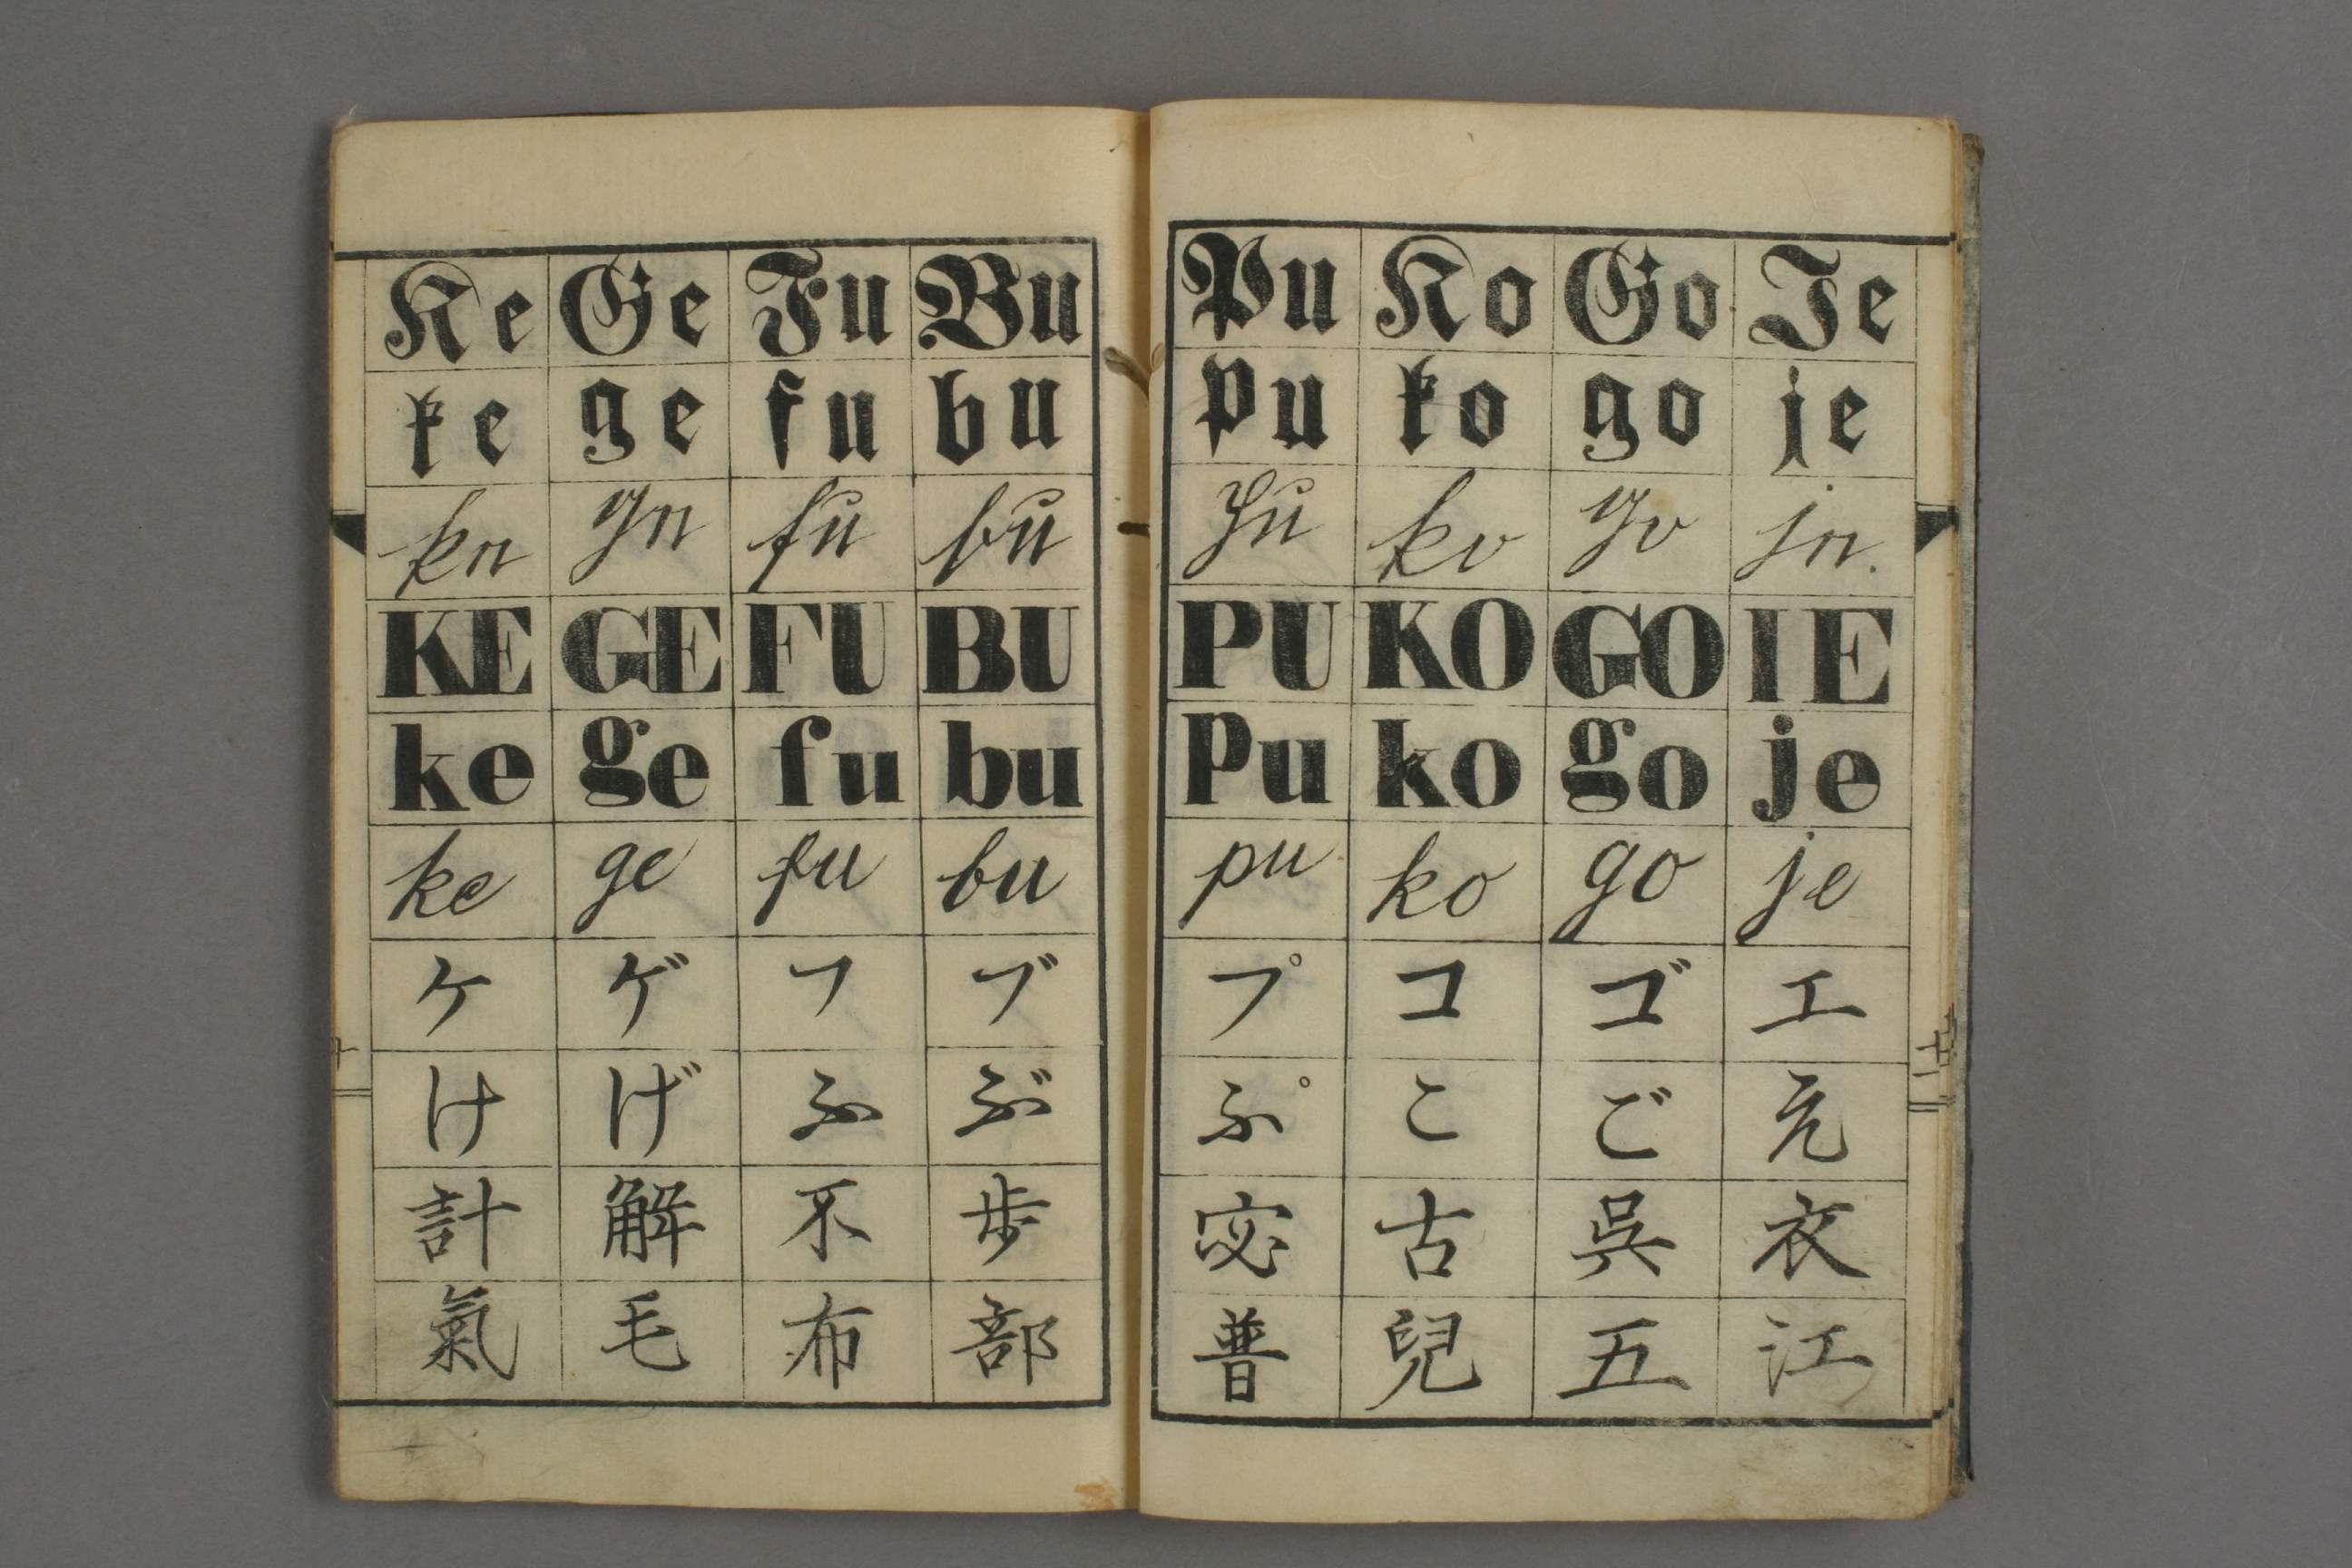 Ke Ge Fu Bu
ke ge fu bu
ke ge fu bu
KE GE FU BU
ke ge fu bu
ke ge fu bu
ケ ゲ フ ブ
け げ ふ ぶ
計 解 不 歩
氣 毛 布 部
Pu Ko Go Je
pu ko go je
pu ko go je.
PU KO GO IE
Pu ko go je
pu ko go je
プ コ ゴ エ
ぷ こ ご え
宓 古 呉 衣
普 兒 五 江